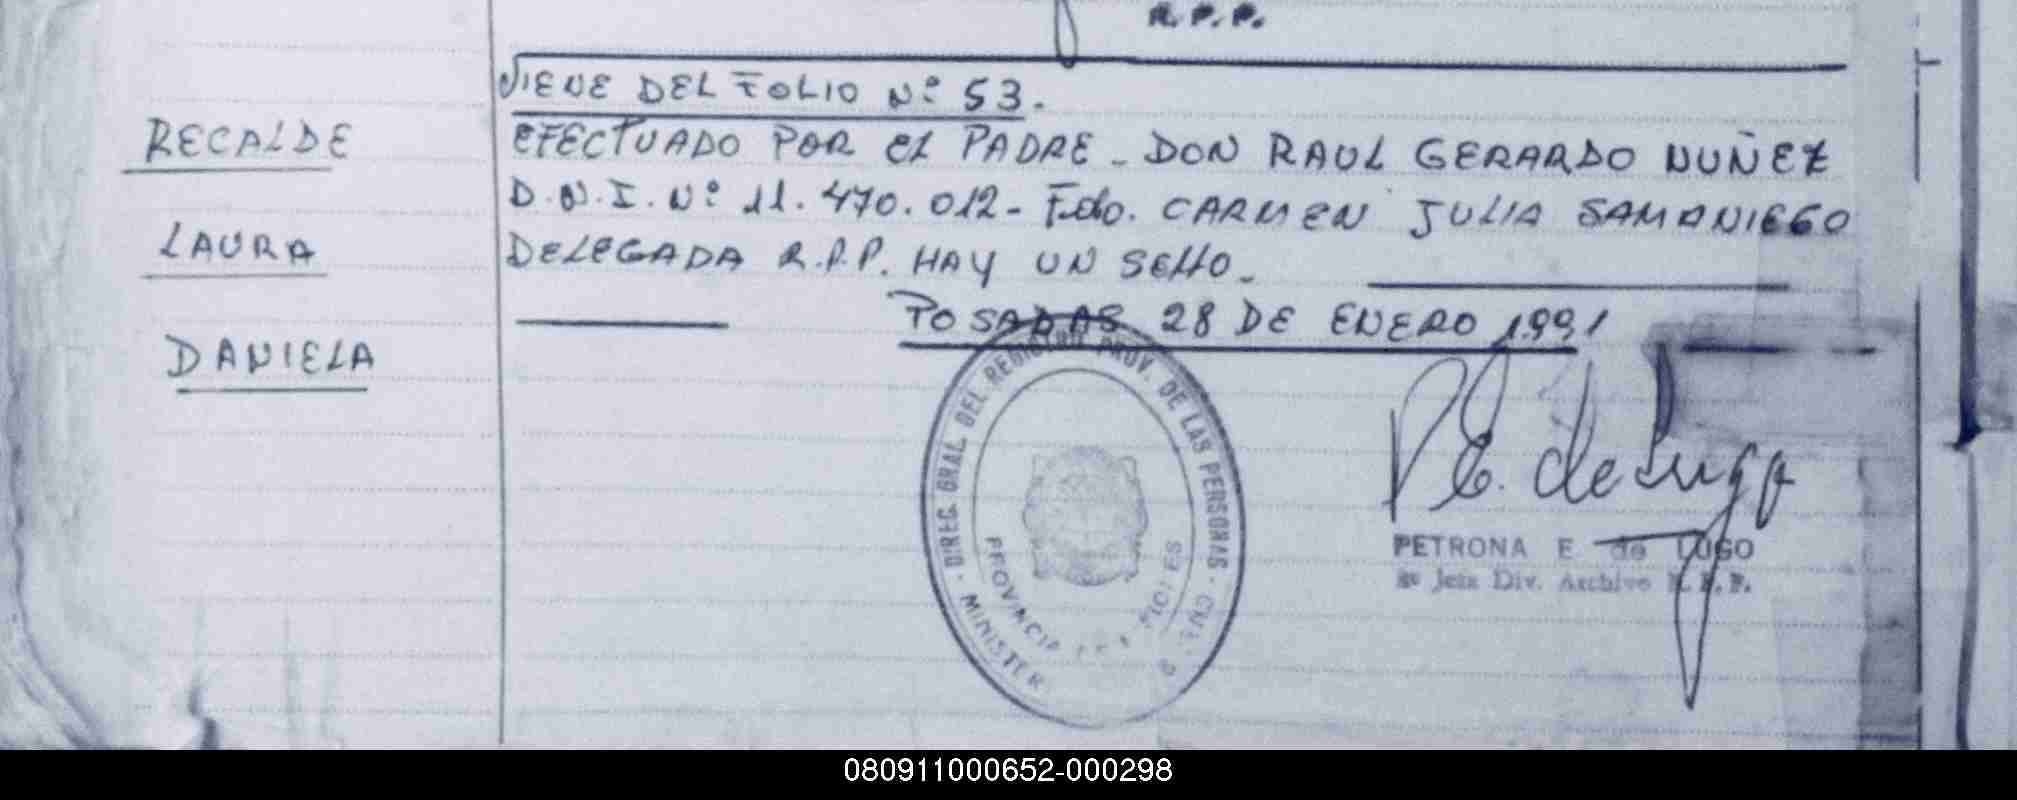 R.P.P.
VIENE DEL FOLIO Nº 53.
RECALDE
EFECTUADO POR EL PADRE - DON RAUL GERARDO NUÑEZ
D.N.I. Nº 11.470.012 - Fdo. CARMEN JULIA SAMANIEGO
LAURA
DELEGADA R.P.P. HAY UN SELLO -
POSADAS 28 DE ENERO 1.991
DANIELA
DIREC. GRAL. DEL REGISTRO PROV. DE LAS PERSONAS
MINISTER
PROVINCIA
P E. de Lugo
PETRONA E de LUGO
Jefa Div. Archivo R.P.P.
080911000652-000298